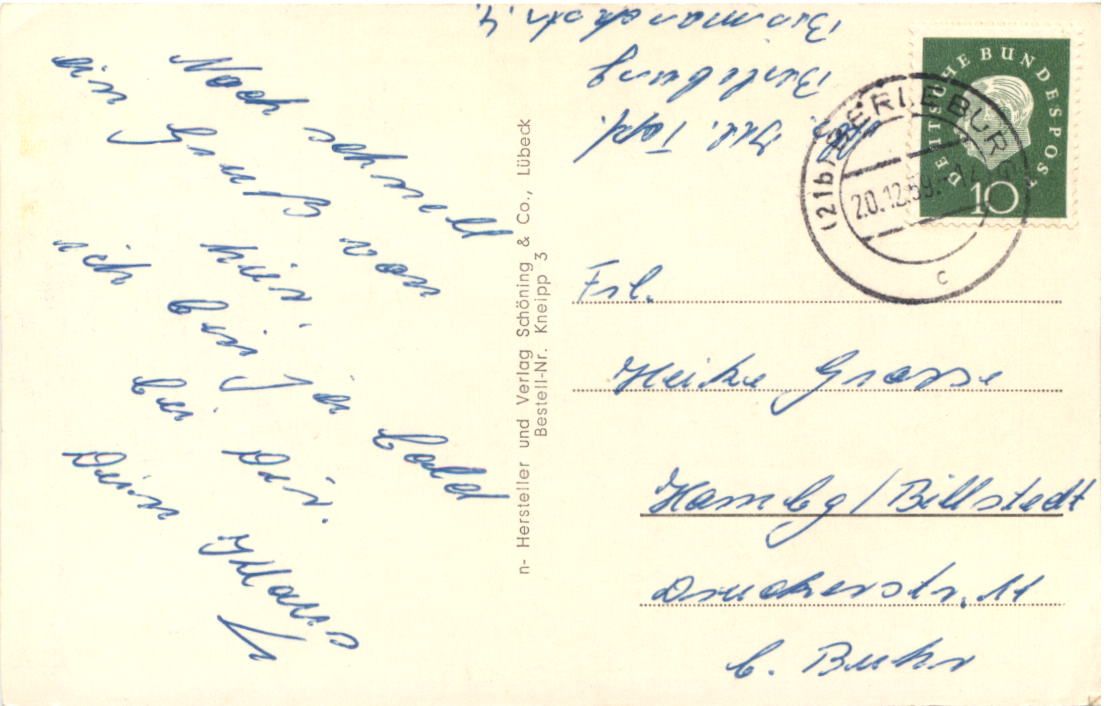 Noch schnell
ein Gruß von
hier.
ich bin ja bald
bei Dir.
Dein Klaus
Topf.
Berleburg
Bismarckstr. 4.
n- Hersteller und Verlag Schöning & Co., Lübeck
Bestell-Nr. Kneipp 3
DEUTSCHE BUNDESPOST
10
(21b) BERLEBURG
20.12.59
c
Frl.
Heike Grosse
Hambg/Billstedt
Druckerstr. 11
b. Buhr